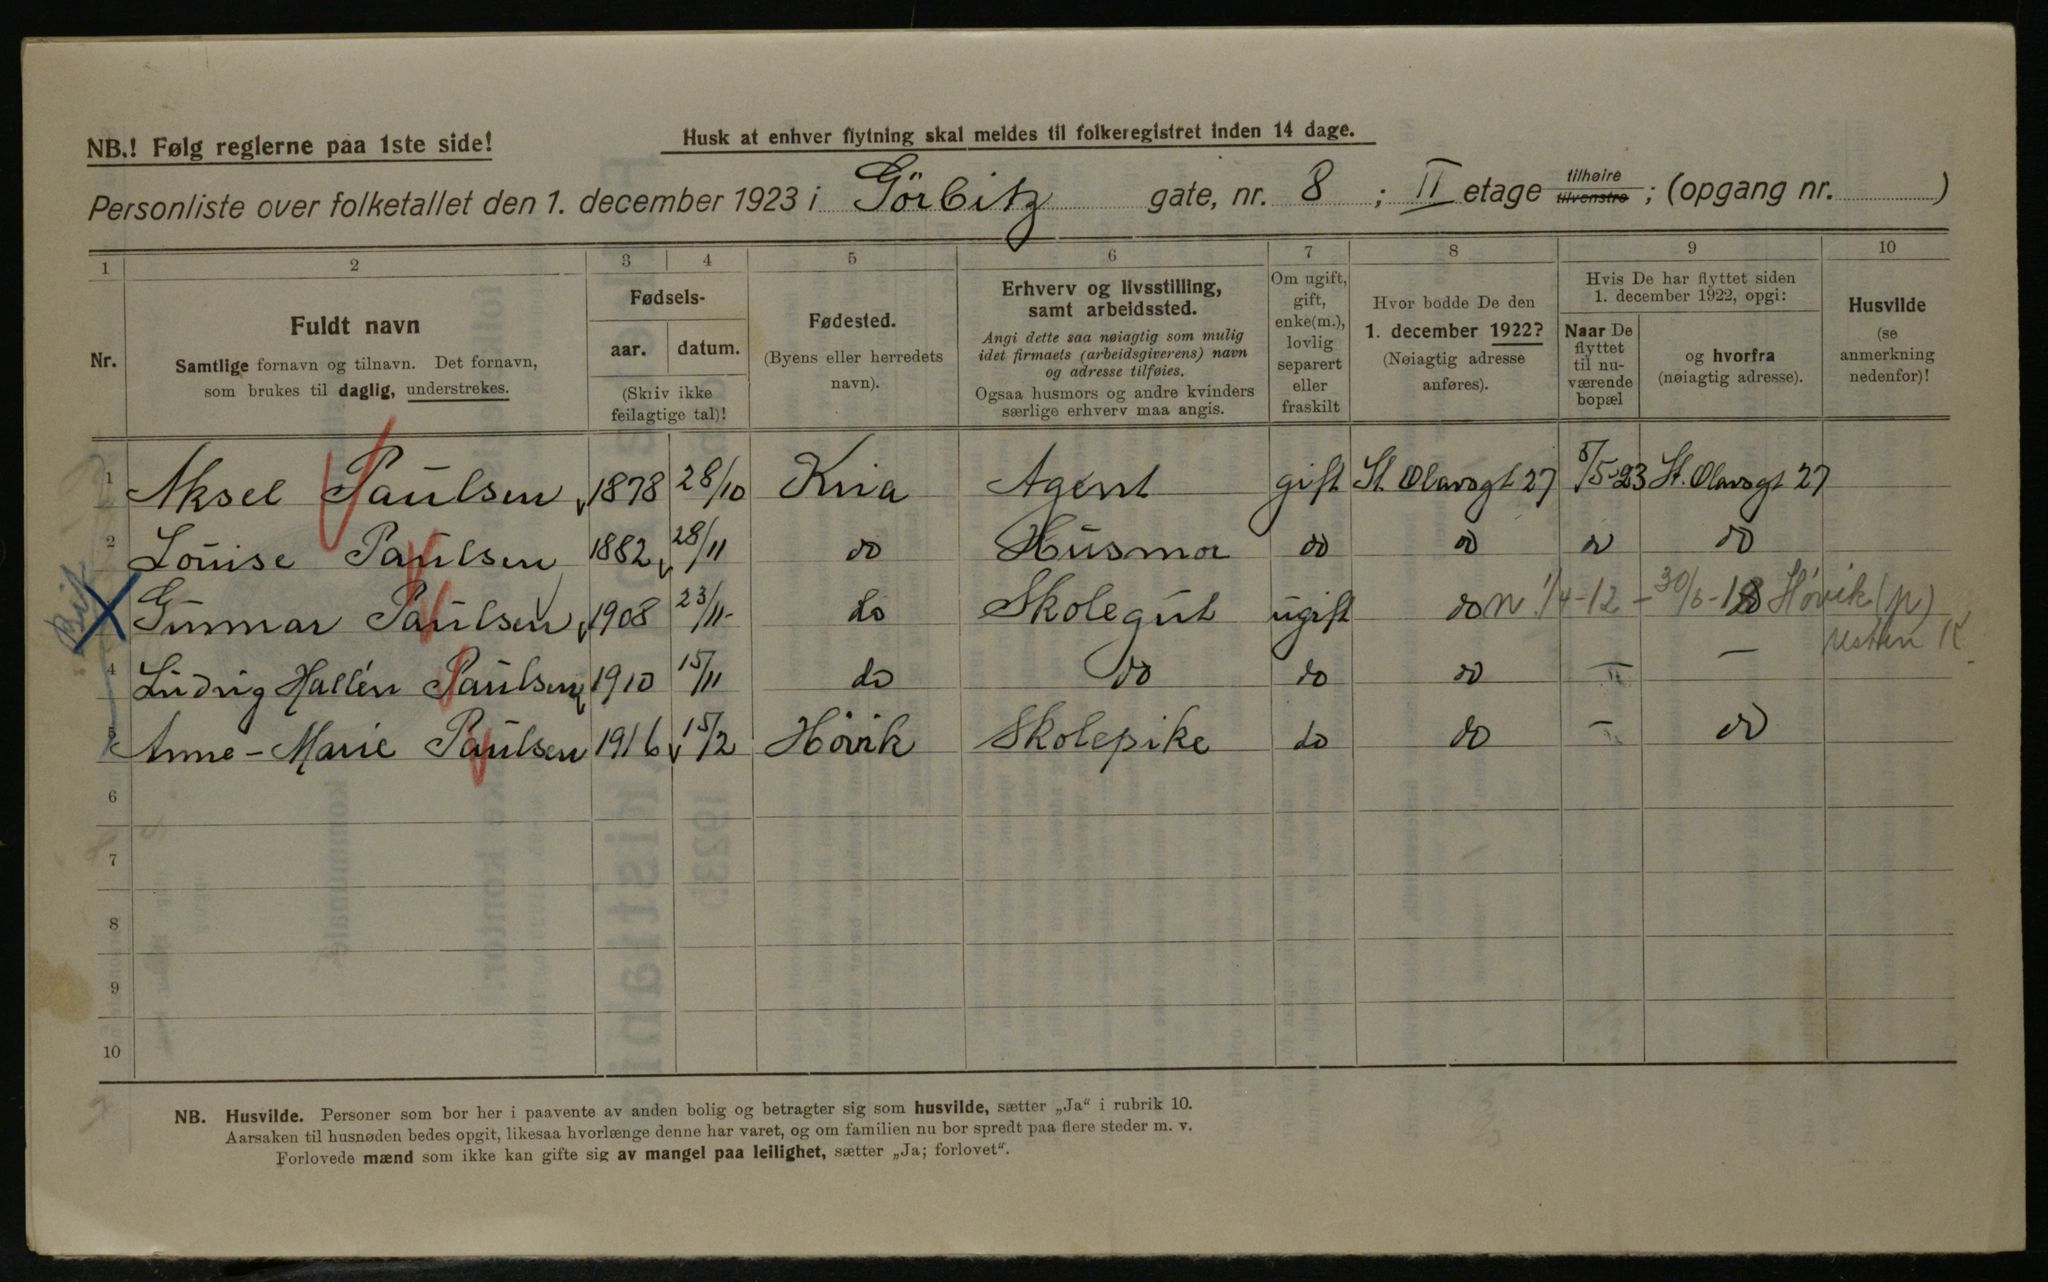 NB.! Følg reglerne paa 1ste side!
Husk at enhver flytning skal meldes til folkeregistret inden 14 dage.
Personliste over folketallet den 1. december 1923 i Görbitz gate, nr. 8 ; II etage tilhøire tilvenstre ; (opgang nr. )
1 2 3 4 5 6 7 8 9 10
Nr.
Fuldt navn
Samtlige fornavn og tilnavn. Det fornavn,
som brukes til daglig, understrekes.
Fødsels-
aar. datum.
(Skriv ikke
feilagtige tal)!
Fødested.
(Byens eller herredets
navn).
Erhverv og livsstilling,
samt arbeidssted.
Angi dette saa nøiagtig som mulig
idet firmaets (arbeidsgiverens) navn
og adresse tilføies.
Ogsaa husmors og andre kvinders
særlige erhverv maa angis.
Om ugift,
gift,
enke(m.),
lovlig
separert
eller
fraskilt
Hvor bodde De den
1. december 1922?
(Nøiagtig adresse
anføres).
Hvis De har flyttet siden
1. december 1922, opgi:
Naar De
flyttet
til nu-
værende
bopæl
og hvorfra
(nøiagtig adresse).
Husvilde
(se
anmerkning
nedenfor)!
1 Aksel Paulsen 1878 28/10 Kria Agent gift St. Olavsgt 27 5/5-23 St. Olavsgt 27
2 Louise Paulsen 1882 28/11 do Husmor do do do do
Gunnar Paulsen 1908 23/11 do Skolegut ugift do n 1/4-12 - 30/6-18 Høvik (p)
resten K
4 Ludvig Hallén Paulsen 1910 15/11 do do do do " –
5 Anne-Marie Paulsen 1916 15/2 Høvik Skolepike do do " do
6
7
8
9
10
NB. Husvilde. Personer som bor her i paavente av anden bolig og betragter sig som husvilde, sætter „Ja“ i rubrik 10.
Aarsaken til husnøden bedes opgit, likesaa hvorlænge denne har varet, og om familien nu bor spredt paa flere steder m. v.
Forlovede mænd som ikke kan gifte sig av mangel paa leilighet, sætter „Ja; forlovet“.